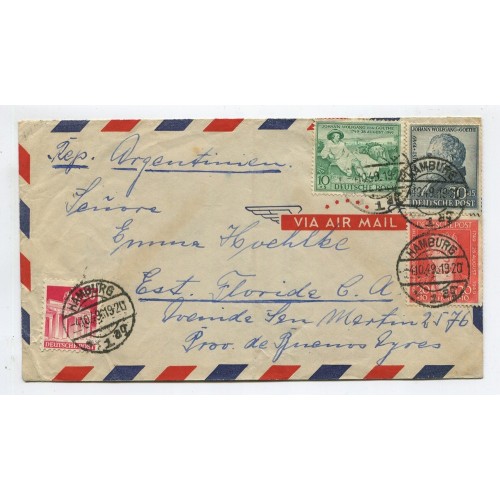 Rep. Argentinien.
Señora
Emma Hoehlke
Est. Floride C. A.
Avenida San Martin 2576
Prov. de Buenos Ayres
VIA AIR MAIL
JOHANN WOLFGANG von GOETHE
10
DEUTSCHE POST
JOHANN WOLFGANG v. GOETHE
30+15
DEUTSCHE POST
HAMBURG
4.10.49.19-20
1
HAMBURG
4.10.49.19-20
HAMBURG
4.10.49.19-20
1
DEUTSCHE POST